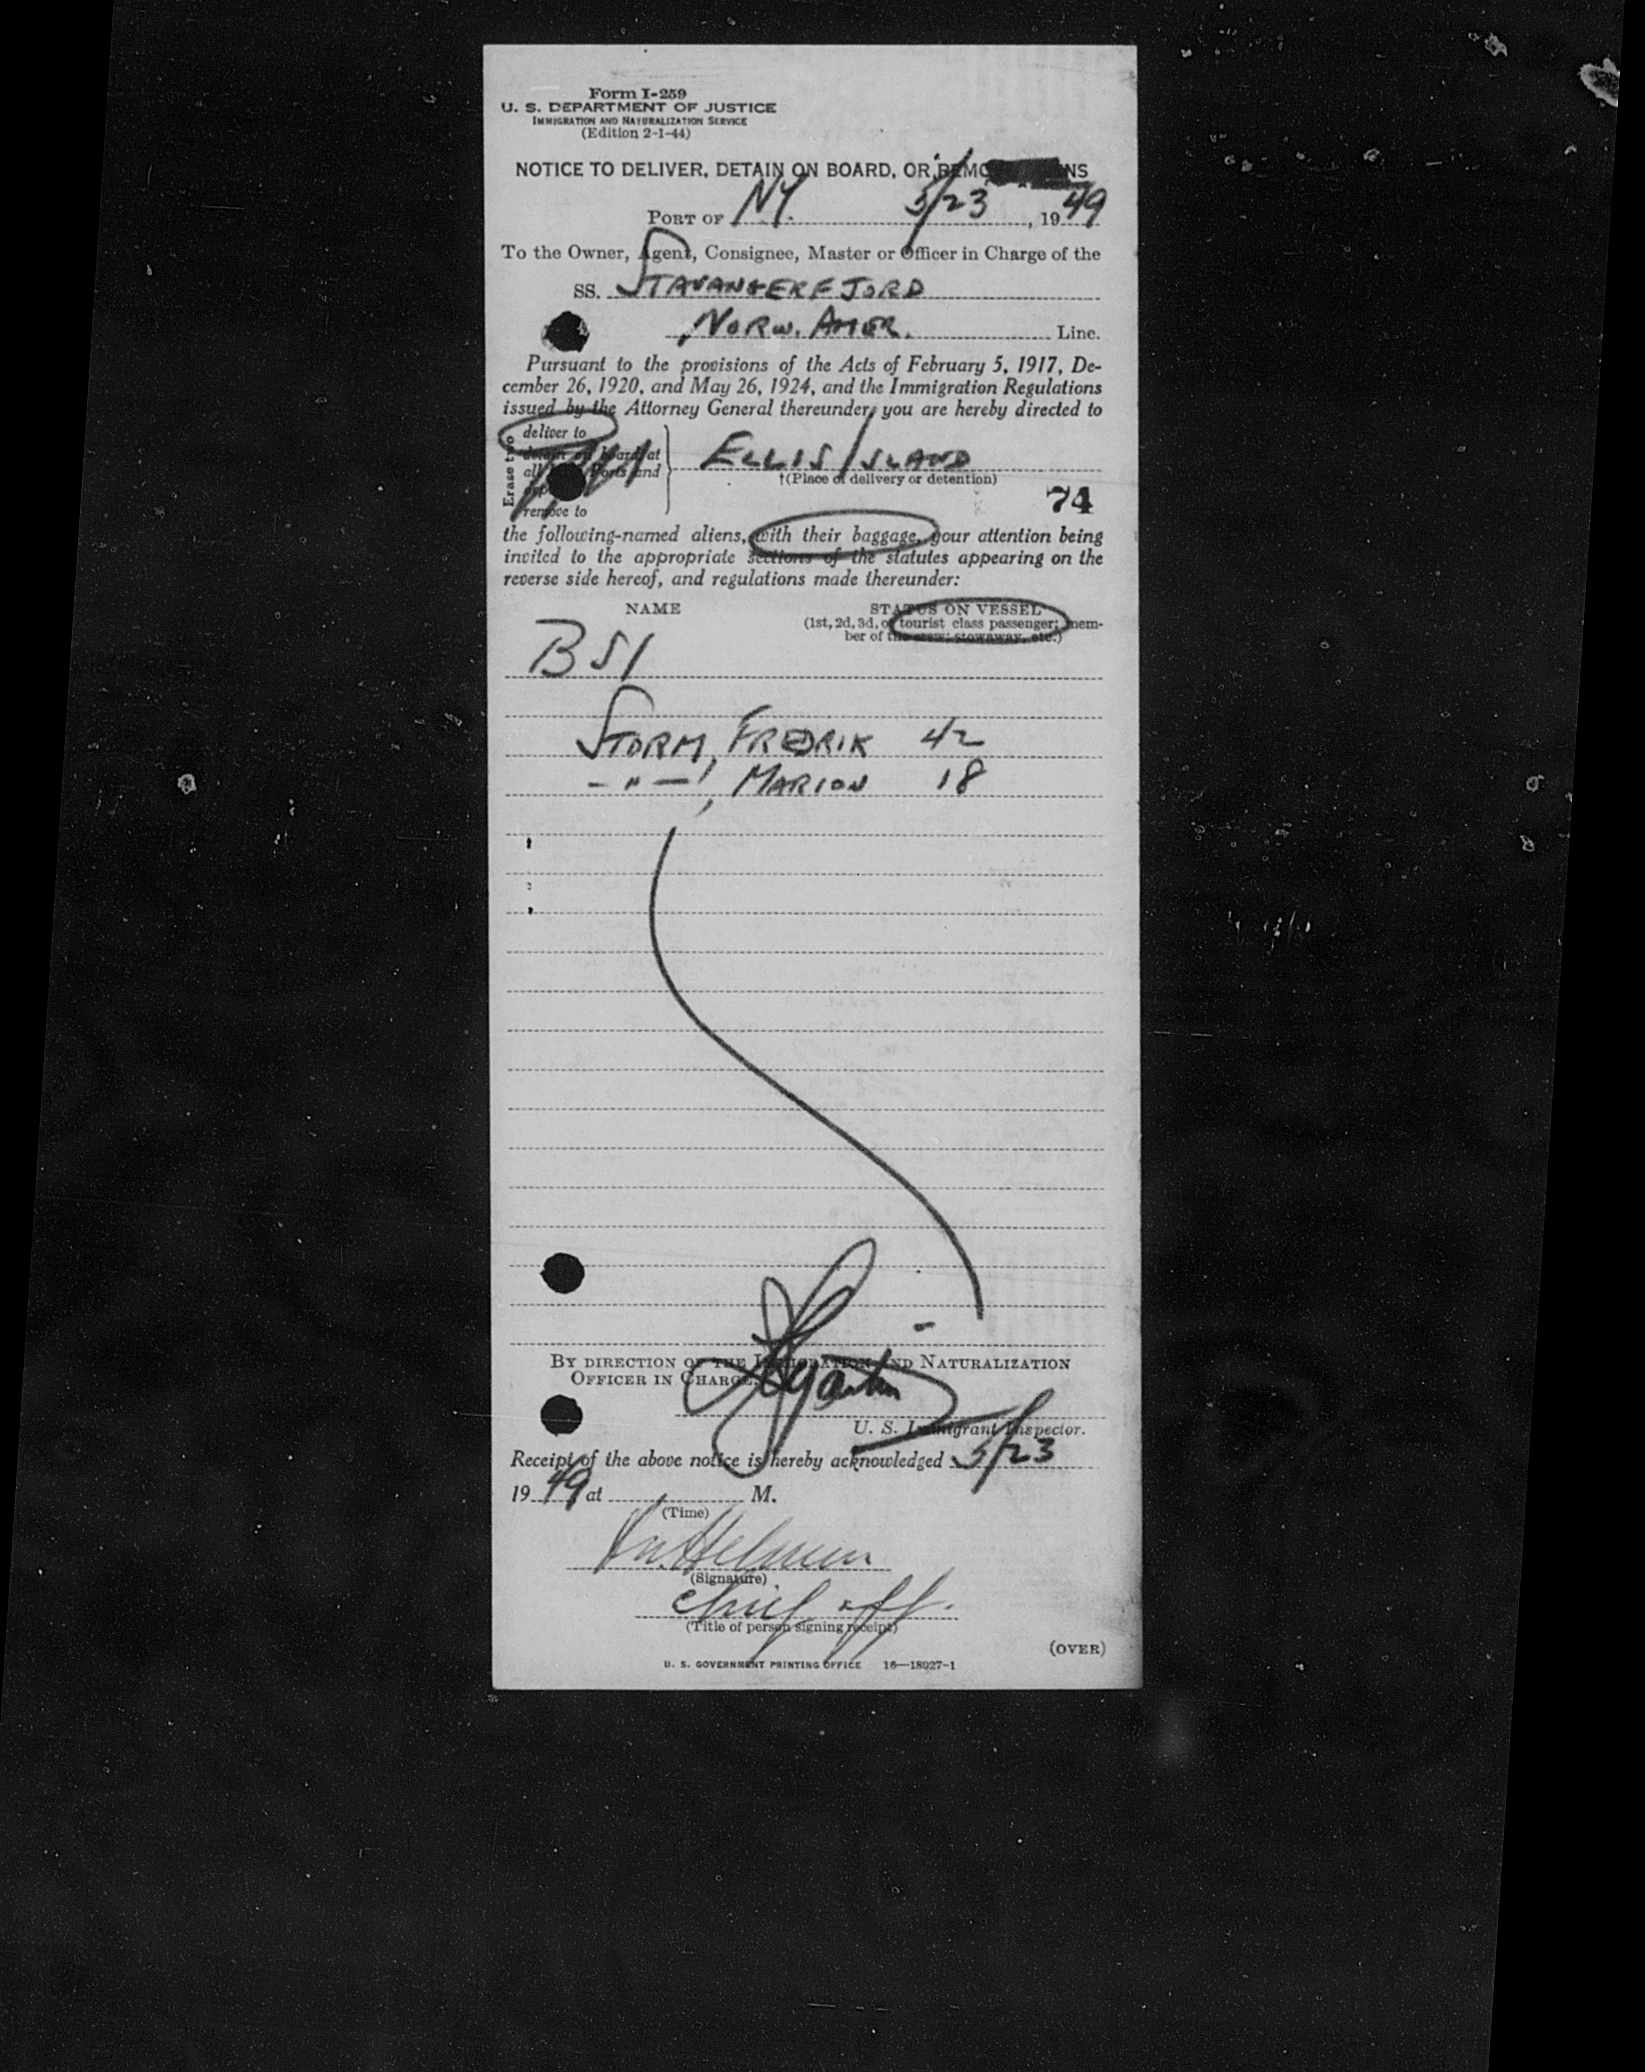 Form I-259
U. S. DEPARTMENT OF JUSTICE
IMMIGRATION AND NATURALIZATION SERVICE
(Edition 2-1-44)
NOTICE TO DELIVER, DETAIN ON BOARD, OR
PORT OF NY. 5/23, 1949
To the Owner, Agent, Consignee, Master or Officer in Charge of the
SS. STAVANGERFJORD
NORW. AMER. Line.
Pursuant to the provisions of the Acts of February 5, 1917, De-
cember 26, 1920, and May 26, 1924, and the Immigration Regulations
issued by the Attorney General thereunder, you are hereby directed to
Erase two
deliver to
detain on board at
all Ports and
remove to
ELLIS ISLAND
†(Place of delivery or detention)
74
the following-named aliens, with their baggage, your attention being
invited to the appropriate sections of the statutes appearing on the
reverse side hereof, and regulations made thereunder:
NAME
STATUS ON VESSEL
(1st, 2d, 3d, or tourist class passenger; mem-
ber of the crew; stowaway, etc.)
BSI
STORM, FREDRIK 42
-"-, MARION 18
BY DIRECTION OF THE IMMIGRATION AND NATURALIZATION
OFFICER IN CHARGE
U. S. Immigrant Inspector.
Receipt of the above notice is hereby acknowledged 5/23
1949 at M.
(Time)
(Signature)
Chief off.
(Title of person signing receipt)
(OVER)
U. S. GOVERNMENT PRINTING OFFICE 16—18027-1